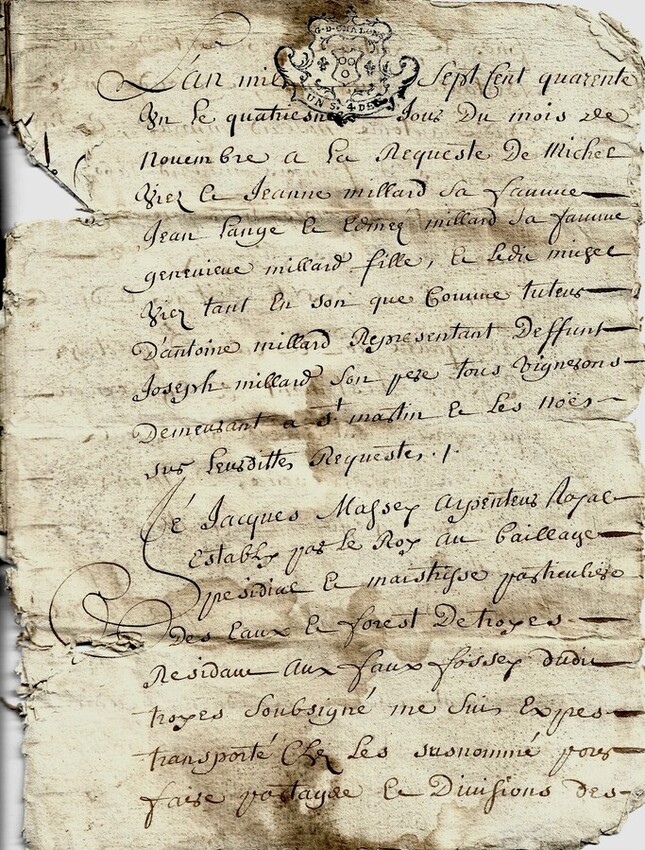 G·D·CHALONS
UN S. 4 DEN
L'an mil Sept Cent quarente
Un le quatriesme Jour Du mois de
novembre a La Requeste De Michel
Viez et Jeanne millard sa famme
Jean Lange et Edmee millard sa famme
genevieve millard fille, et Ledit
Viez tant En son que Comme tuteur
D'antoine millard Representant Deffunt
Joseph millard son pere tous Vignerons
Demeurant a St martin et Les noës
sur Leursdittes Requestes ./.
Jé Jacques Massey Arpenteur Royal
Establÿ par Le Roy au bailliage
presidial et maistrisse particuliere
Des Eaux et forest De troyes
Residant Aux faux fossey dudit
troyes Soubsigné me Suis Expres
transporté Chez Les susnommé pour
faire partagee et Divisions des